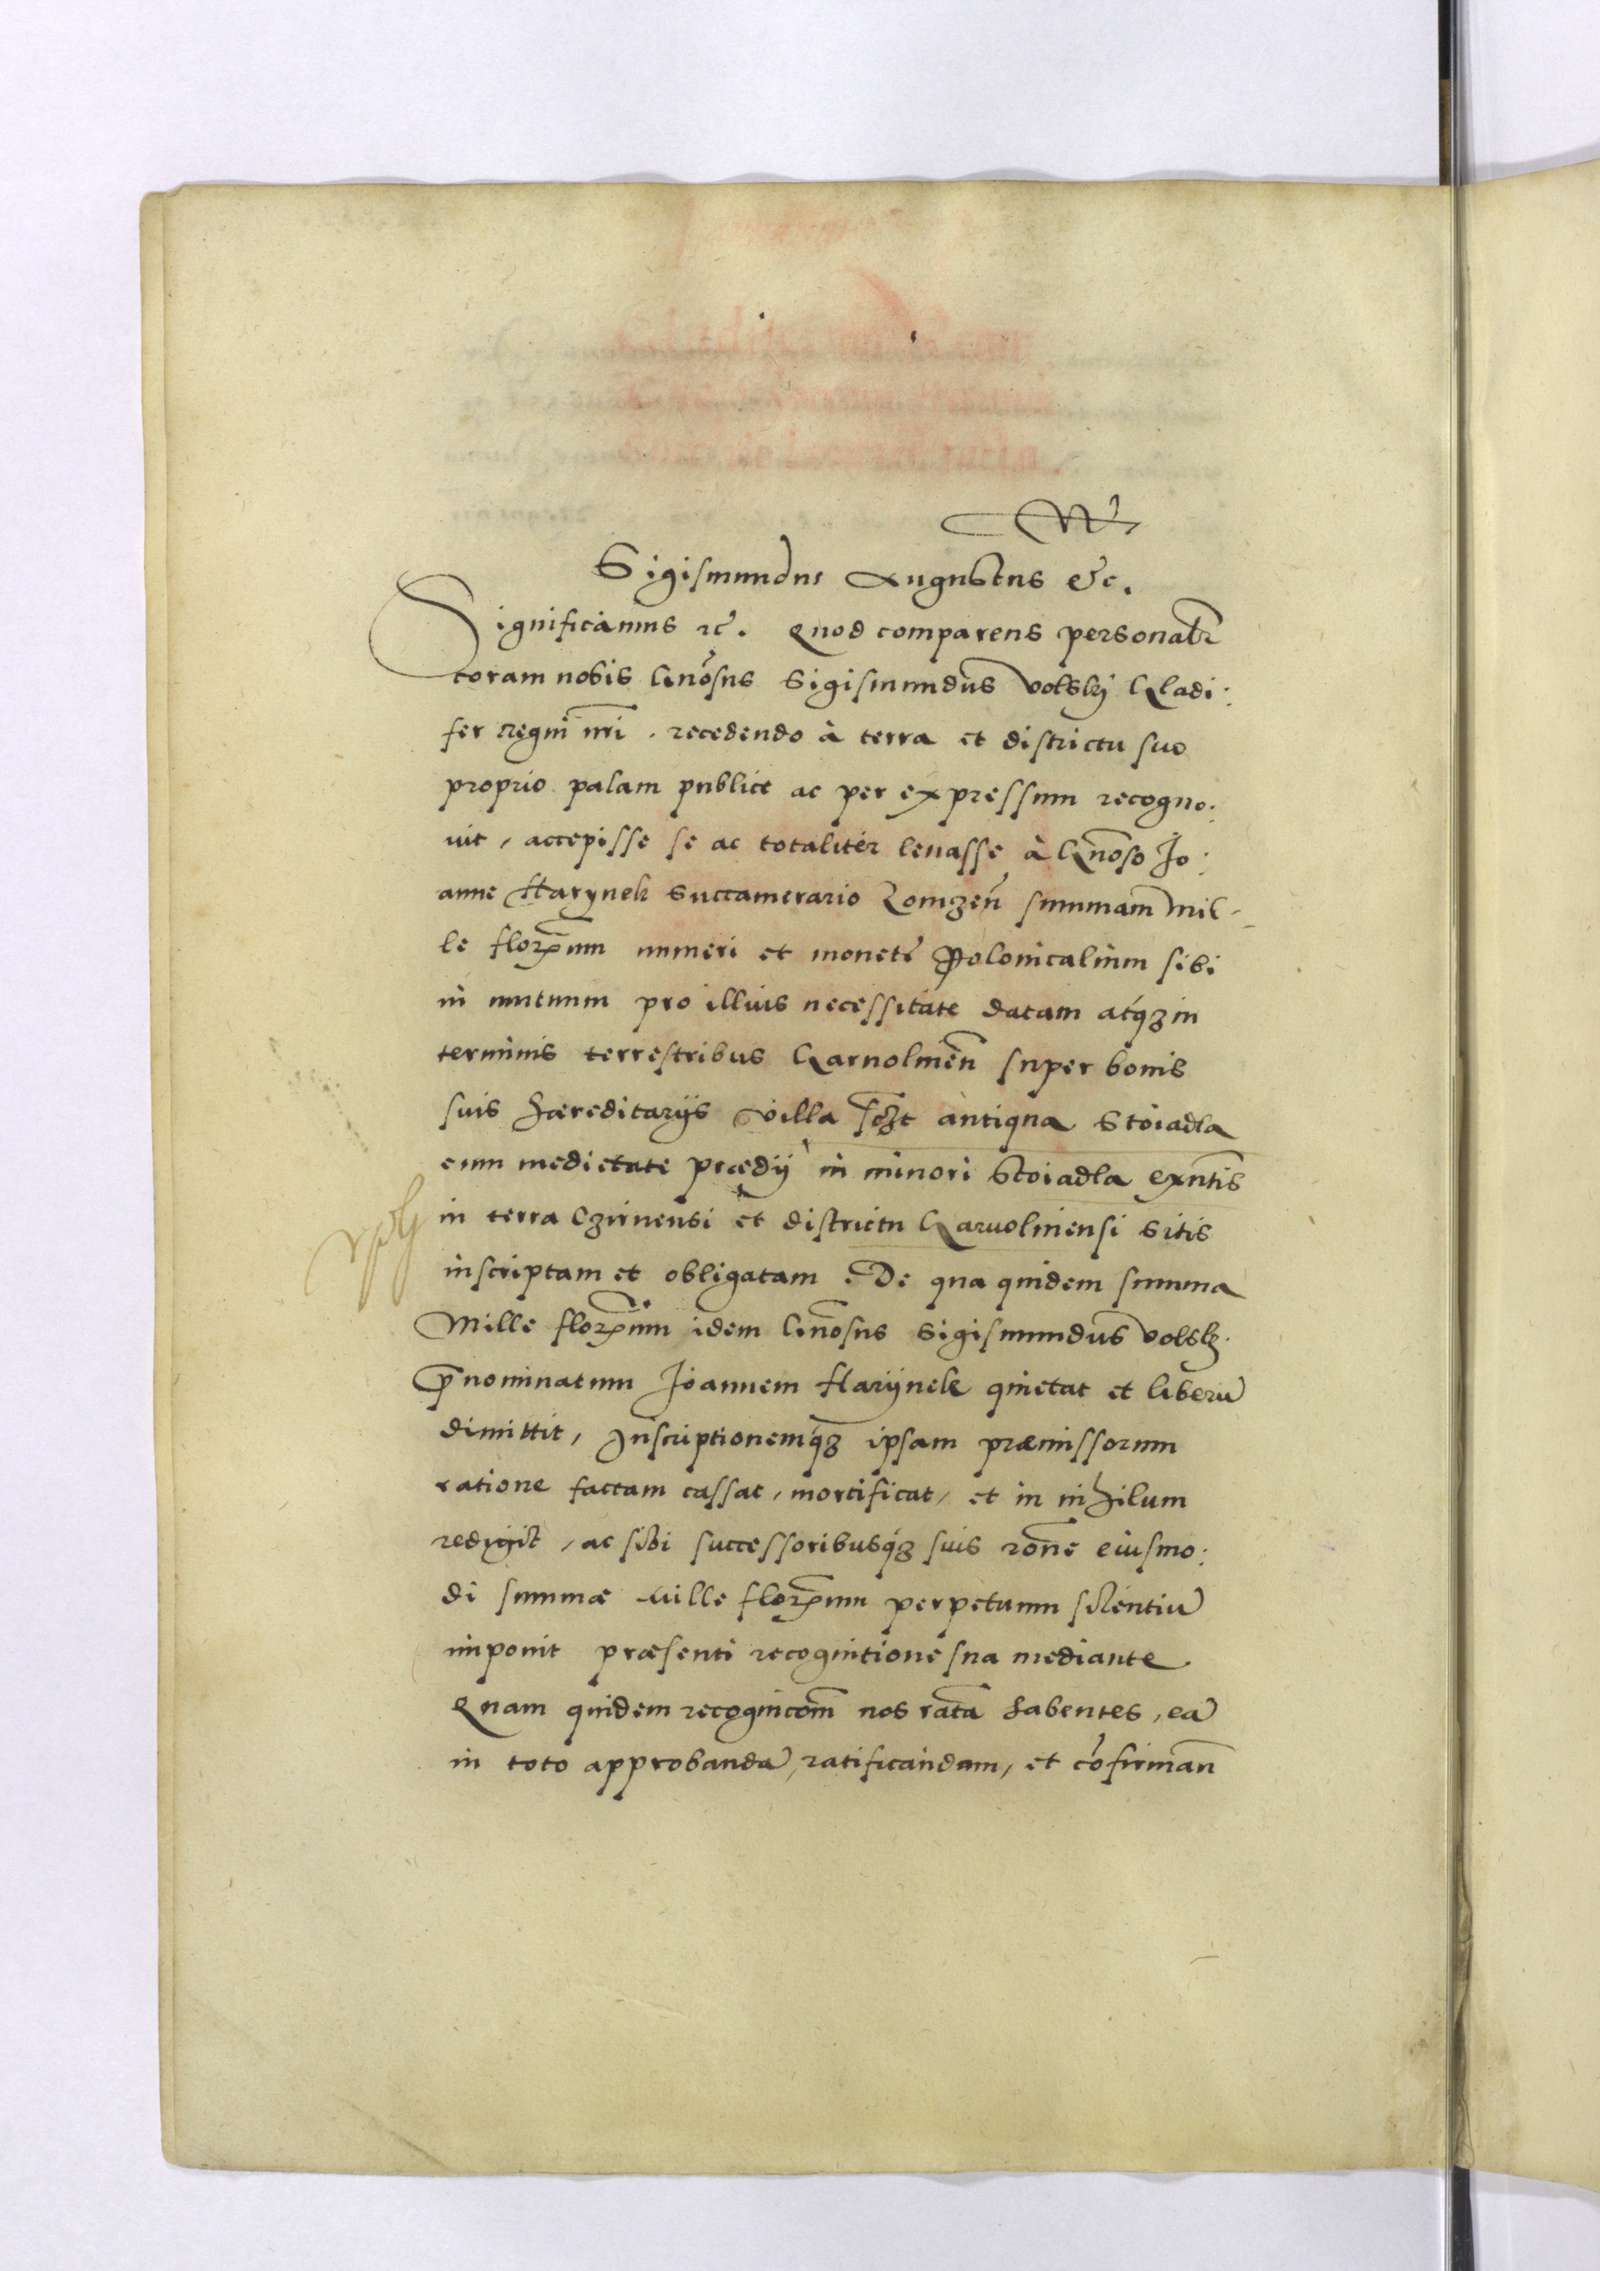 Sigismundus Augustus &c.
Significamus &c. Quod comparens personalr
coram nobis Gnosus Sigismundus Volsky Gladi:
fer Regni nri, recedendo à terra et districtu suo
proprio palam publice ac per expressum recogno:
uit, accepisse se ac totaliter leuasse à Gnoso Jo:
anne Harynek Succamerario Lomzen summam mil-
le florenum numeri et monete Polonicalium sibi
in mutuum pro illius necessitate datam atqz in
terminis terrestribus Garuolinen super bonis
suis hæreditarijs villa scilicet antiqua Stoiadla
cum medietate prædij in minori Stoiadla exntis
in terra Czirnensi et districtu Garuoliniensi sitis
inscriptam et obligatam. De qua quidem summa
Mille florenum idem Gnosus Sigismundus Volsk.
prnominatum Joannem Harynek quietat et liberu
dimittit, Inscriptionemqz ipsam præmissorum
ratione factam cassat, mortificat, et in nihilum
redigit, ac sibi successoribusqz suis rone eiusmo:
di summæ mille florenum perpetuum silentiu
imponit præsenti recognitione sua mediante
Quam quidem recognicom nos rata habentes, ea
in toto approbanda, ratificandam, et cofirman